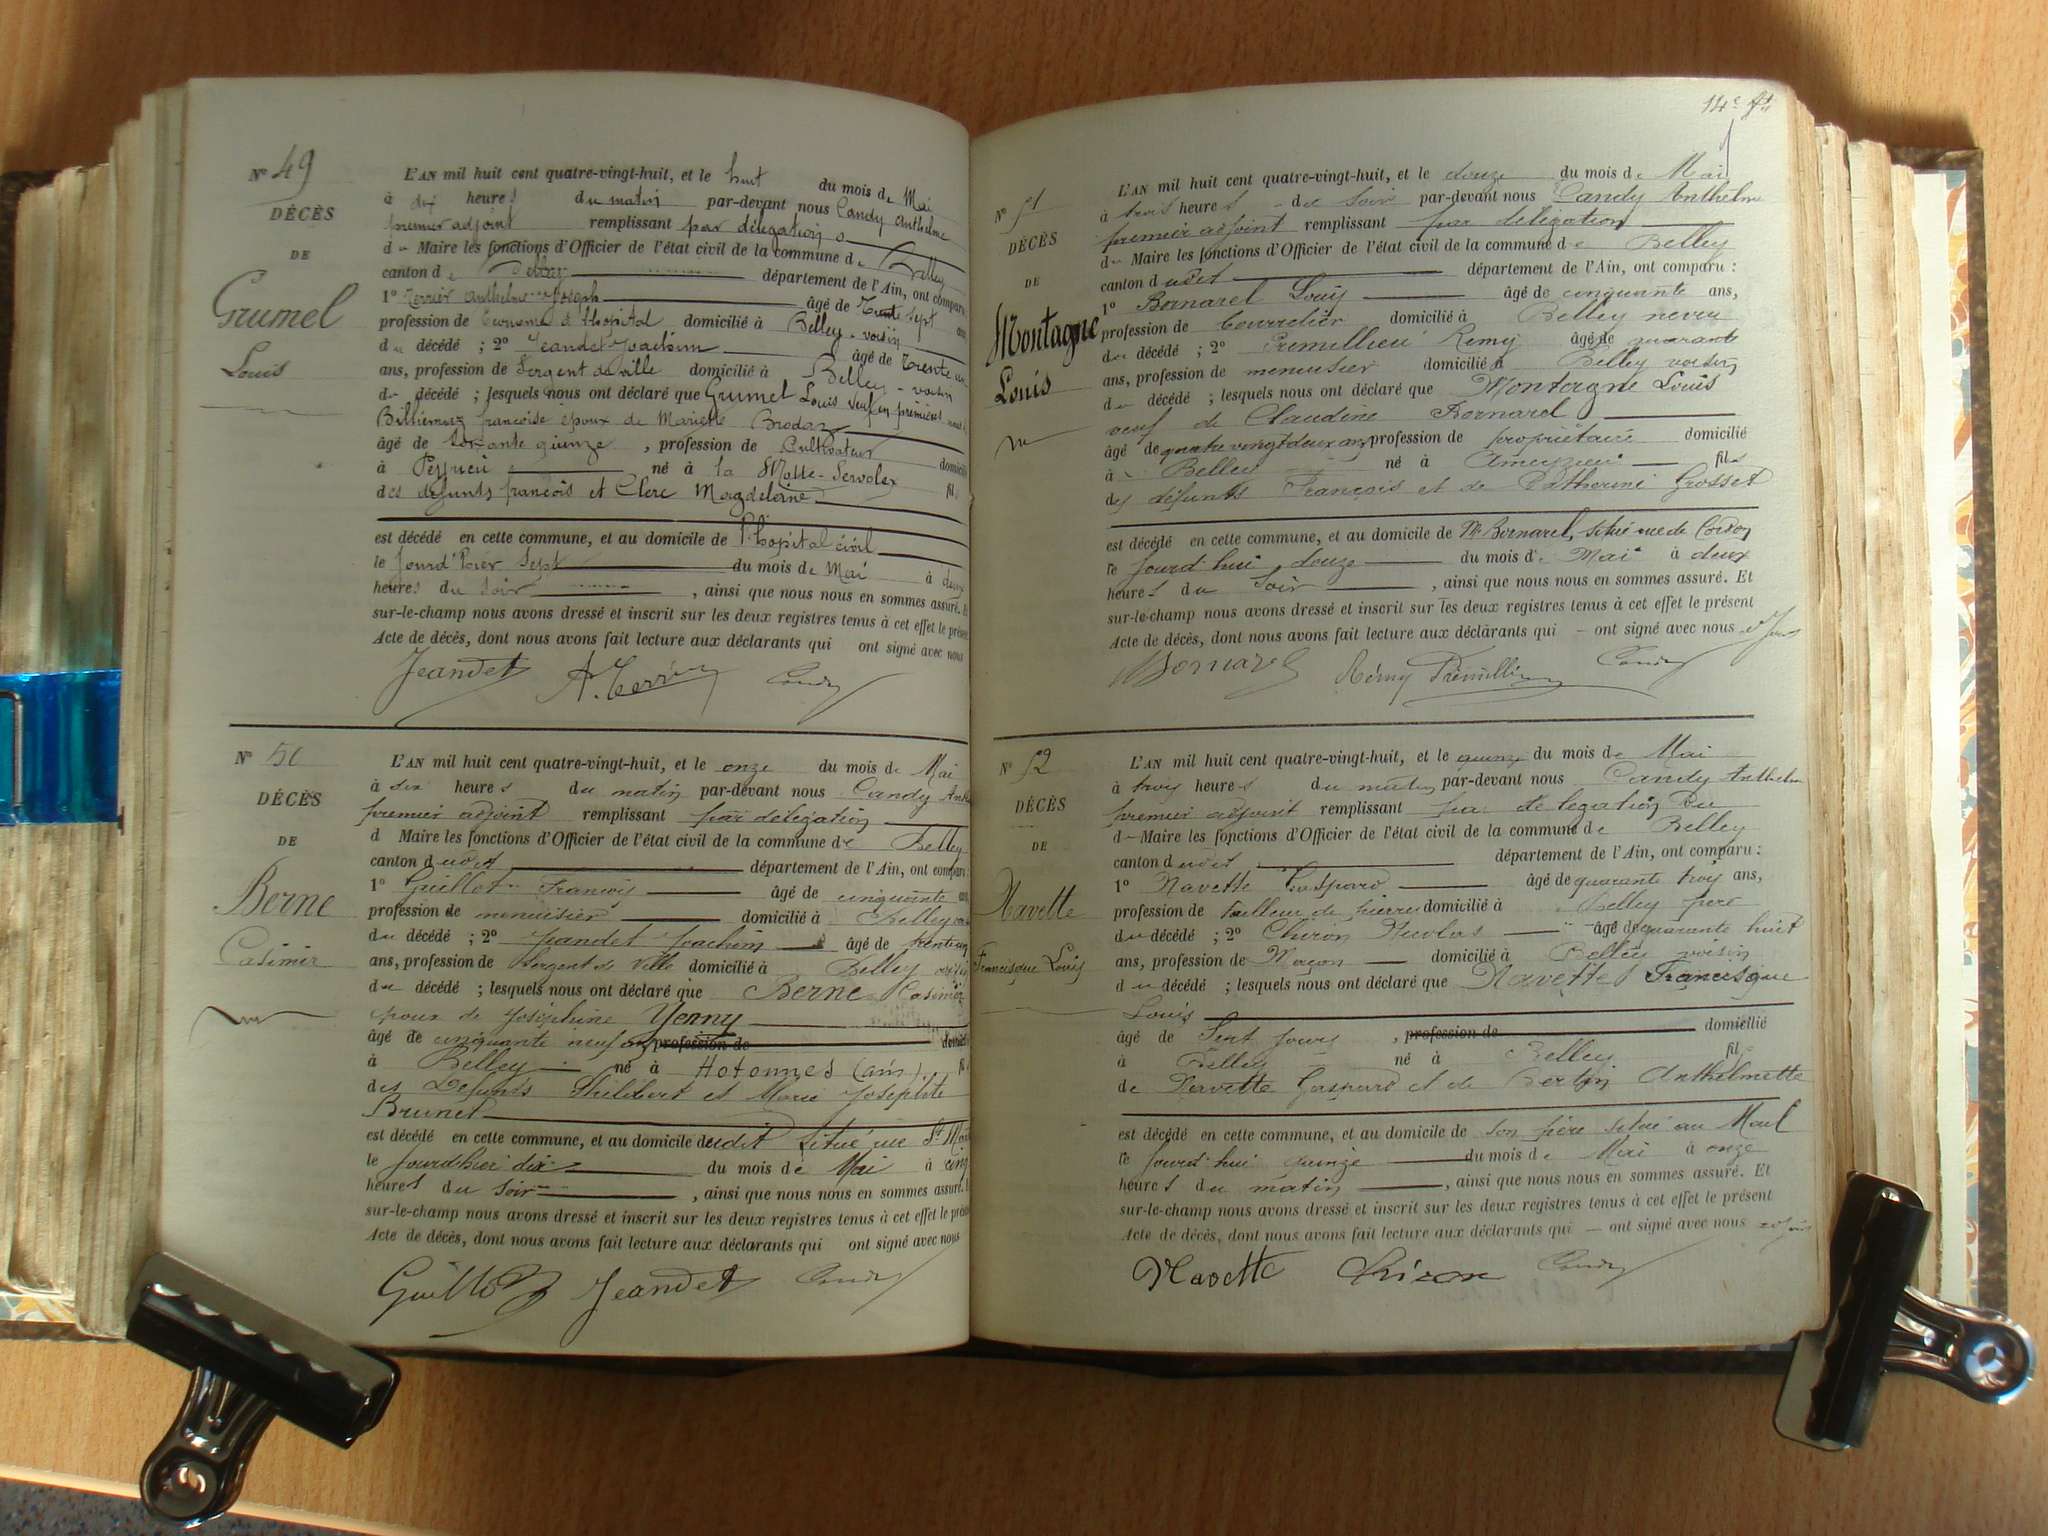 Nº 49
DÉCÈS
DE
Grumel
Louis
L'AN mil huit cent quatre-vingt-huit, et le huit du mois de Mai
à dix heures du matin par-devant nous Candy Anthelme
premier adjoint remplissant par délégation
du Maire les fonctions d'Officier de l'état civil de la commune de Belley
canton de Belley département de l'Ain, ont comparu
1º Terrier Anthelme Joseph âgé de Trente sept ans
profession de Econome à l'hopital domicilié à Belley - voisin
du décédé ; 2º Jeandet Joachim âgé de Trente un
ans, profession de Sergent de ville domicilié à Belley - voisin
du décédé ; lesquels nous ont déclaré que Grumel Louis veuf en premières
Billiemaz françoise époux de Mariette Brodaz
âgé de soixante quinze , profession de Cultivateur domicilié
à Peyrieu né à la Motte-Servolex fils
des défunts françois et Clerc Magdeleine
est décédé en cette commune, et au domicile de l'hopital civil
le Jourd'hier Sept du mois de Mai à deux
heures du soir , ainsi que nous nous en sommes assuré. Et
sur-le-champ nous avons dressé et inscrit sur les deux registres tenus à cet effet le présent
Acte de décès, dont nous avons fait lecture aux déclarants qui ont signé avec nous
Jeandet A. Terrier Candy
Nº 50
DÉCÈS
DE
Berne
Casimir
L'AN mil huit cent quatre-vingt-huit, et le onze du mois de Mai
à dix heures du matin par-devant nous Candy Anth
premier adjoint remplissant par délégation
d Maire les fonctions d'Officier de l'état civil de la commune de Belley
canton dudit département de l'Ain, ont comparu
1º Guillot François âgé de cinquante ans
profession de menuisier domicilié à Belley
du décédé ; 2º Jeandet Joachim âgé de trente un
ans, profession de Sergent de Ville domicilié à Belley voisin
du décédé ; lesquels nous ont déclaré que Berne Casimir
époux de Joséphine Yenny
âgé de cinquante neuf ans profession de domicilié
à Belley né à Hotonnes (ain), fil
des Défunts Philibert et Marie Josephte
Brunet
est décédé en cette commune, et au domicile dudit situé rue St Mart
le jourdhier dix du mois de Mai à cinq
heures du soir , ainsi que nous nous en sommes assuré. E
sur-le-champ nous avons dressé et inscrit sur les deux registres tenus à cet effet le présent
Acte de décès, dont nous avons fait lecture aux déclarants qui ont signé avec nous
Guillot Jeandet Candy
14e ft
Nº 51
DÉCÈS
DE
Montagne
Louis
L'AN mil huit cent quatre-vingt-huit, et le douze du mois de Mai
à trois heures du soir par-devant nous Candy Anthelme
premier adjoint remplissant par délégation
du Maire les fonctions d'Officier de l'état civil de la commune de Belley
canton dudit département de l'Ain, ont comparu :
1º Bornarel Louis âgé de cinquante ans,
profession de Courrelier domicilié à Belley neveu
du décédé ; 2º Premillieu Remy âgé de quarante
ans, profession de menuisier domicilié à Belley voisin
du décédé ; lesquels nous ont déclaré que Montagne Louis
veuf de Claudine Bornarel
âgé de quatre vingt deux ans profession de propriétaire domicilié
à Belley né à Ameyzieu fils
des défunts François et de Catherine Grosset
est décédé en cette commune, et au domicile de Mr Bornarel, situé rue de Cordon
le jourd'hui douze du mois de Mai à deux
heures du Soir , ainsi que nous nous en sommes assuré. Et
sur-le-champ nous avons dressé et inscrit sur les deux registres tenus à cet effet le présent
Acte de décès, dont nous avons fait lecture aux déclarants qui ont signé avec nous
Bornarel Rémy Prémillieu Candy
Nº 52
DÉCÈS
DE
Navette
Francisque Louis
L'AN mil huit cent quatre-vingt-huit, et le quinze du mois de Mai
à trois heures du matin par-devant nous Candy Anthelm
premier adjoint remplissant par délégation Du
d Maire les fonctions d'Officier de l'état civil de la commune de Belley
canton dudit département de l'Ain, ont comparu :
1º Navette Gaspard âgé de quarante trois ans,
profession de tailleur de pierres domicilié à Belley père
du décédé ; 2º Chiron Nicolas âgé de quarante huit
ans, profession de Maçon domicilié à Belley voisin
du décédé ; lesquels nous ont déclaré que Navette Francisque
Louis
âgé de Sept jours , profession de domicilié
à Belley né à Belley fils
de Navette Gaspard et de Bertin Anthelmette
est décédé en cette commune, et au domicile de son père situé au Mail
le jourd'hui quinze du mois de Mai à onze
heures du matin , ainsi que nous nous en sommes assuré. Et
sur-le-champ nous avons dressé et inscrit sur les deux registres tenus à cet effet le présent
Acte de décès, dont nous avons fait lecture aux déclarants qui ont signé avec nous
Navette Chiron Candy